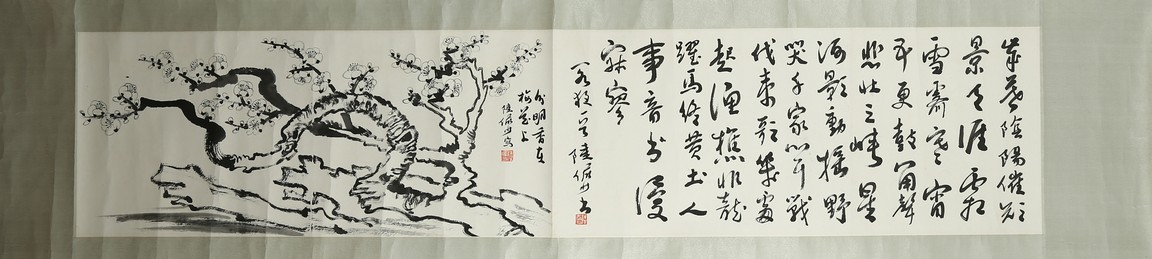 歲暮陰陽催短
景天涯霜
雪霽寒宵
五更鼓角聲
悲壯三峽星
河影動搖野
哭千家聞戰
伐夷歌幾處
起漁樵卧龍
躍馬終黃土人
事音書漫
寂寥
陸儼少書
分明香在
梅花上
陸儼少寫